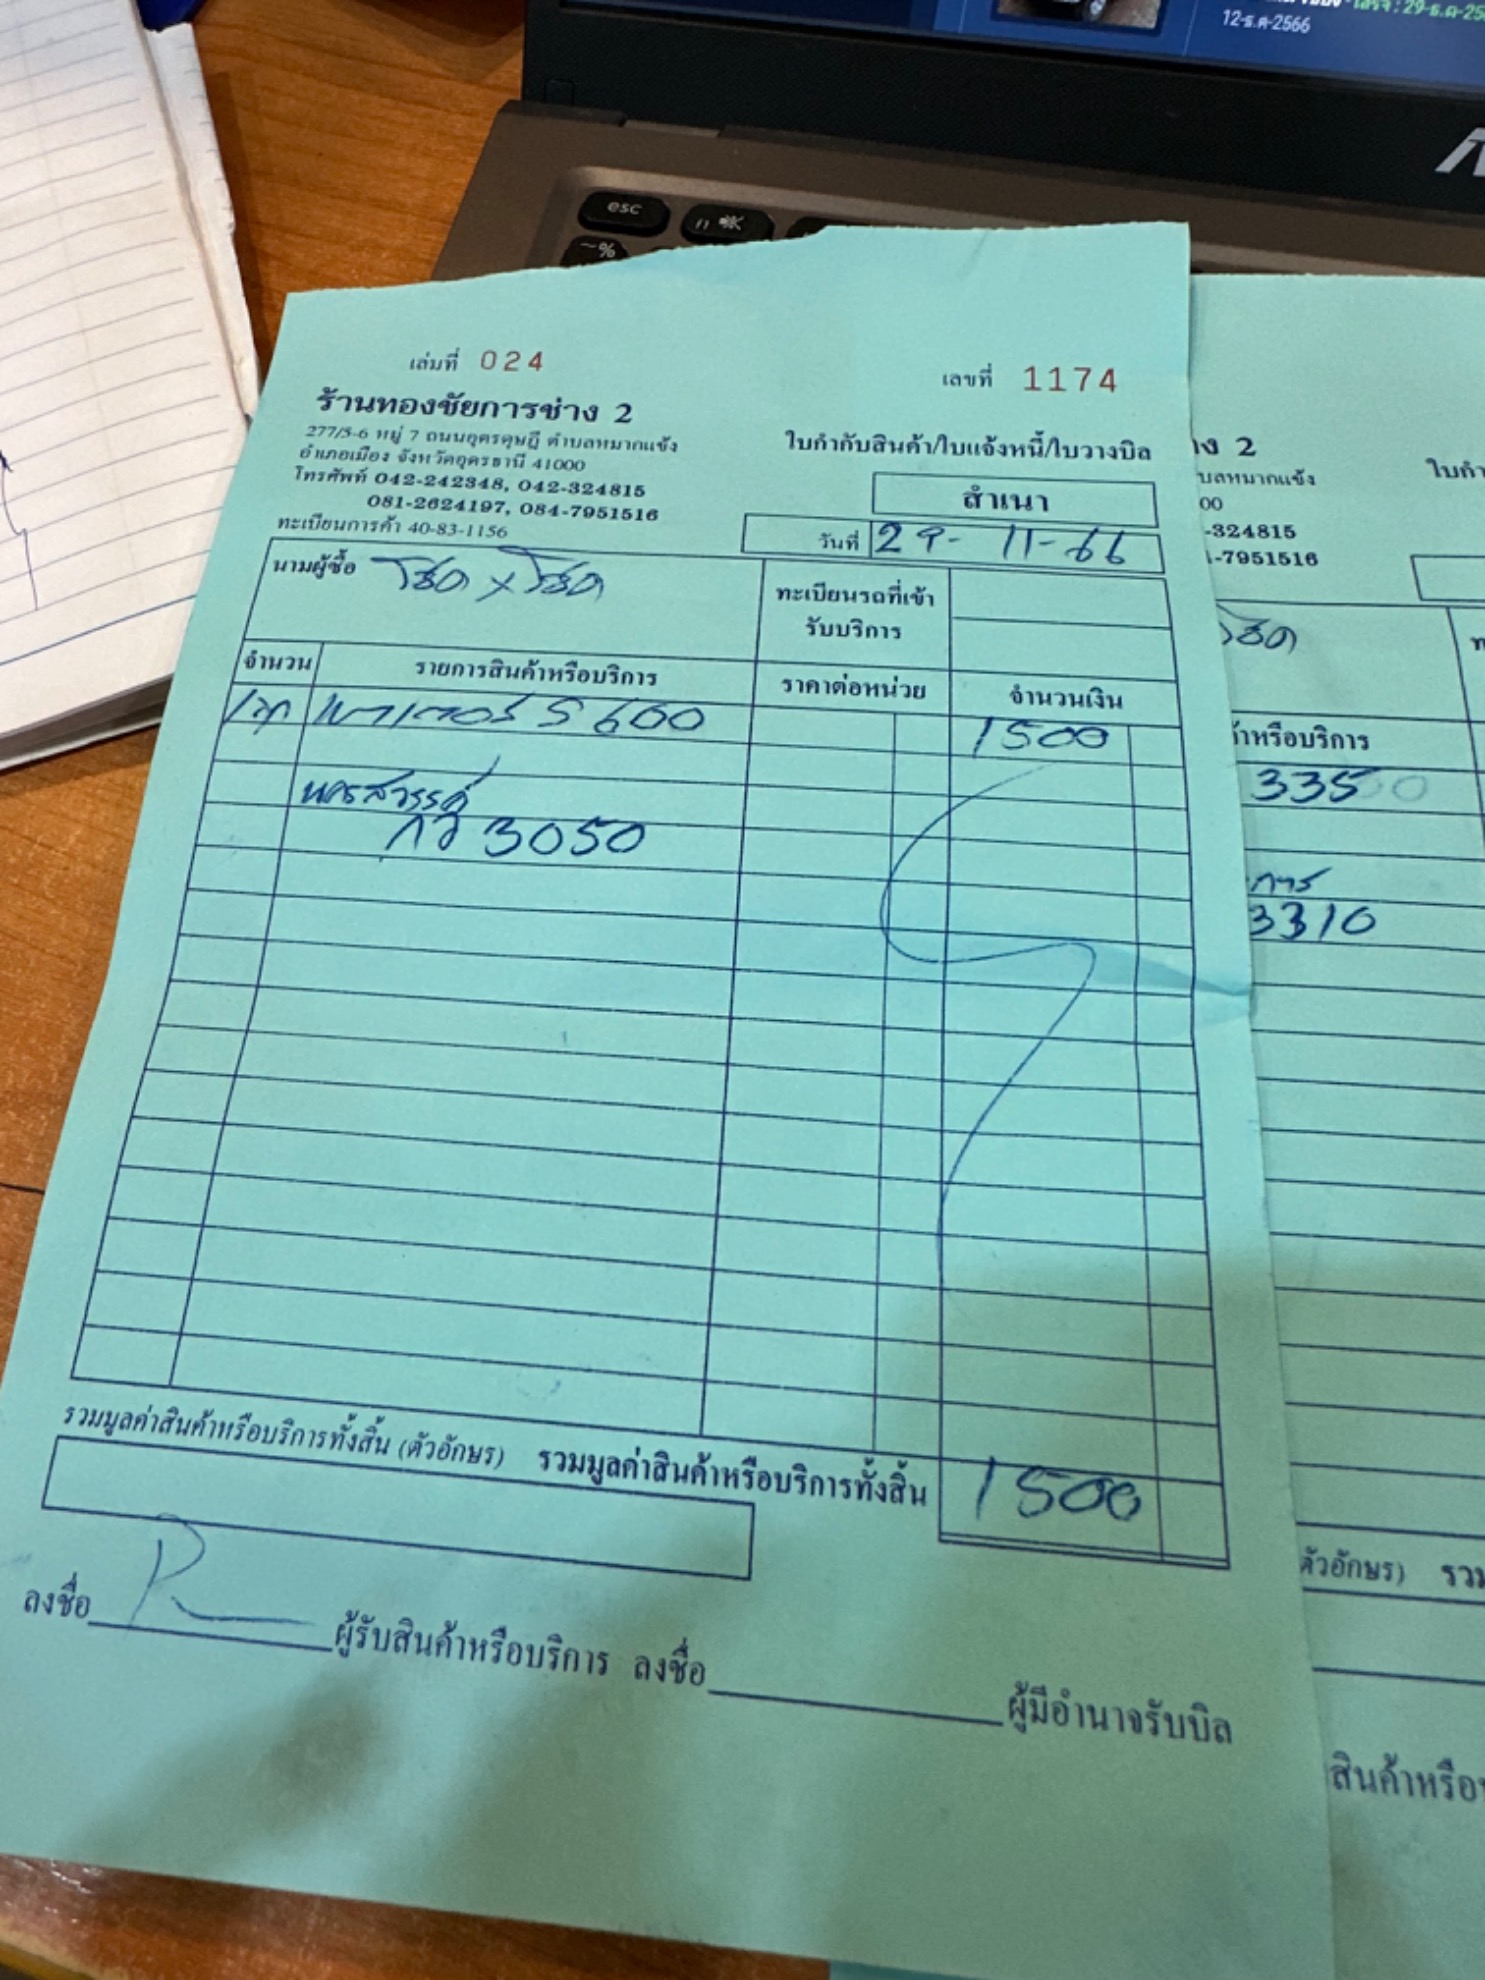 12-ธ.ค-2566
esc
เล่มที่ 024
เลขที่ 1174
ร้านทองชัยการช่าง 2
277/5-6 หมู่ 7 ถนนอุดรดุษฎี ตำบลหมากแข้ง
อำเภอเมือง จังหวัดอุดรธานี 41000
โทรศัพท์ 042-242348, 042-324815
081-2624197, 084-7951516
ทะเบียนการค้า 40-83-1156
ใบกำกับสินค้า/ใบแจ้งหนี้/ใบวางบิล
สำเนา
วันที่ 29-11-66
นามผู้ซื้อ โชค x โชค
ทะเบียนรถที่เข้า
รับบริการ
จำนวน รายการสินค้าหรือบริการ ราคาต่อหน่วย จำนวนเงิน
600 1500
นครสวรรค์
กว 3050
รวมมูลค่าสินค้าหรือบริการทั้งสิ้น (ตัวอักษร) รวมมูลค่าสินค้าหรือบริการทั้งสิ้น 1500
ลงชื่อ ผู้รับสินค้าหรือบริการ ลงชื่อ ผู้มีอำนาจรับบิล
าง 2
บลหมากแข้ง
00
-324815
1-7951516
ใบกำ
โชค
้าหรือบริการ
335
3310
ตัวอักษร) รวม
สินค้าหรือ